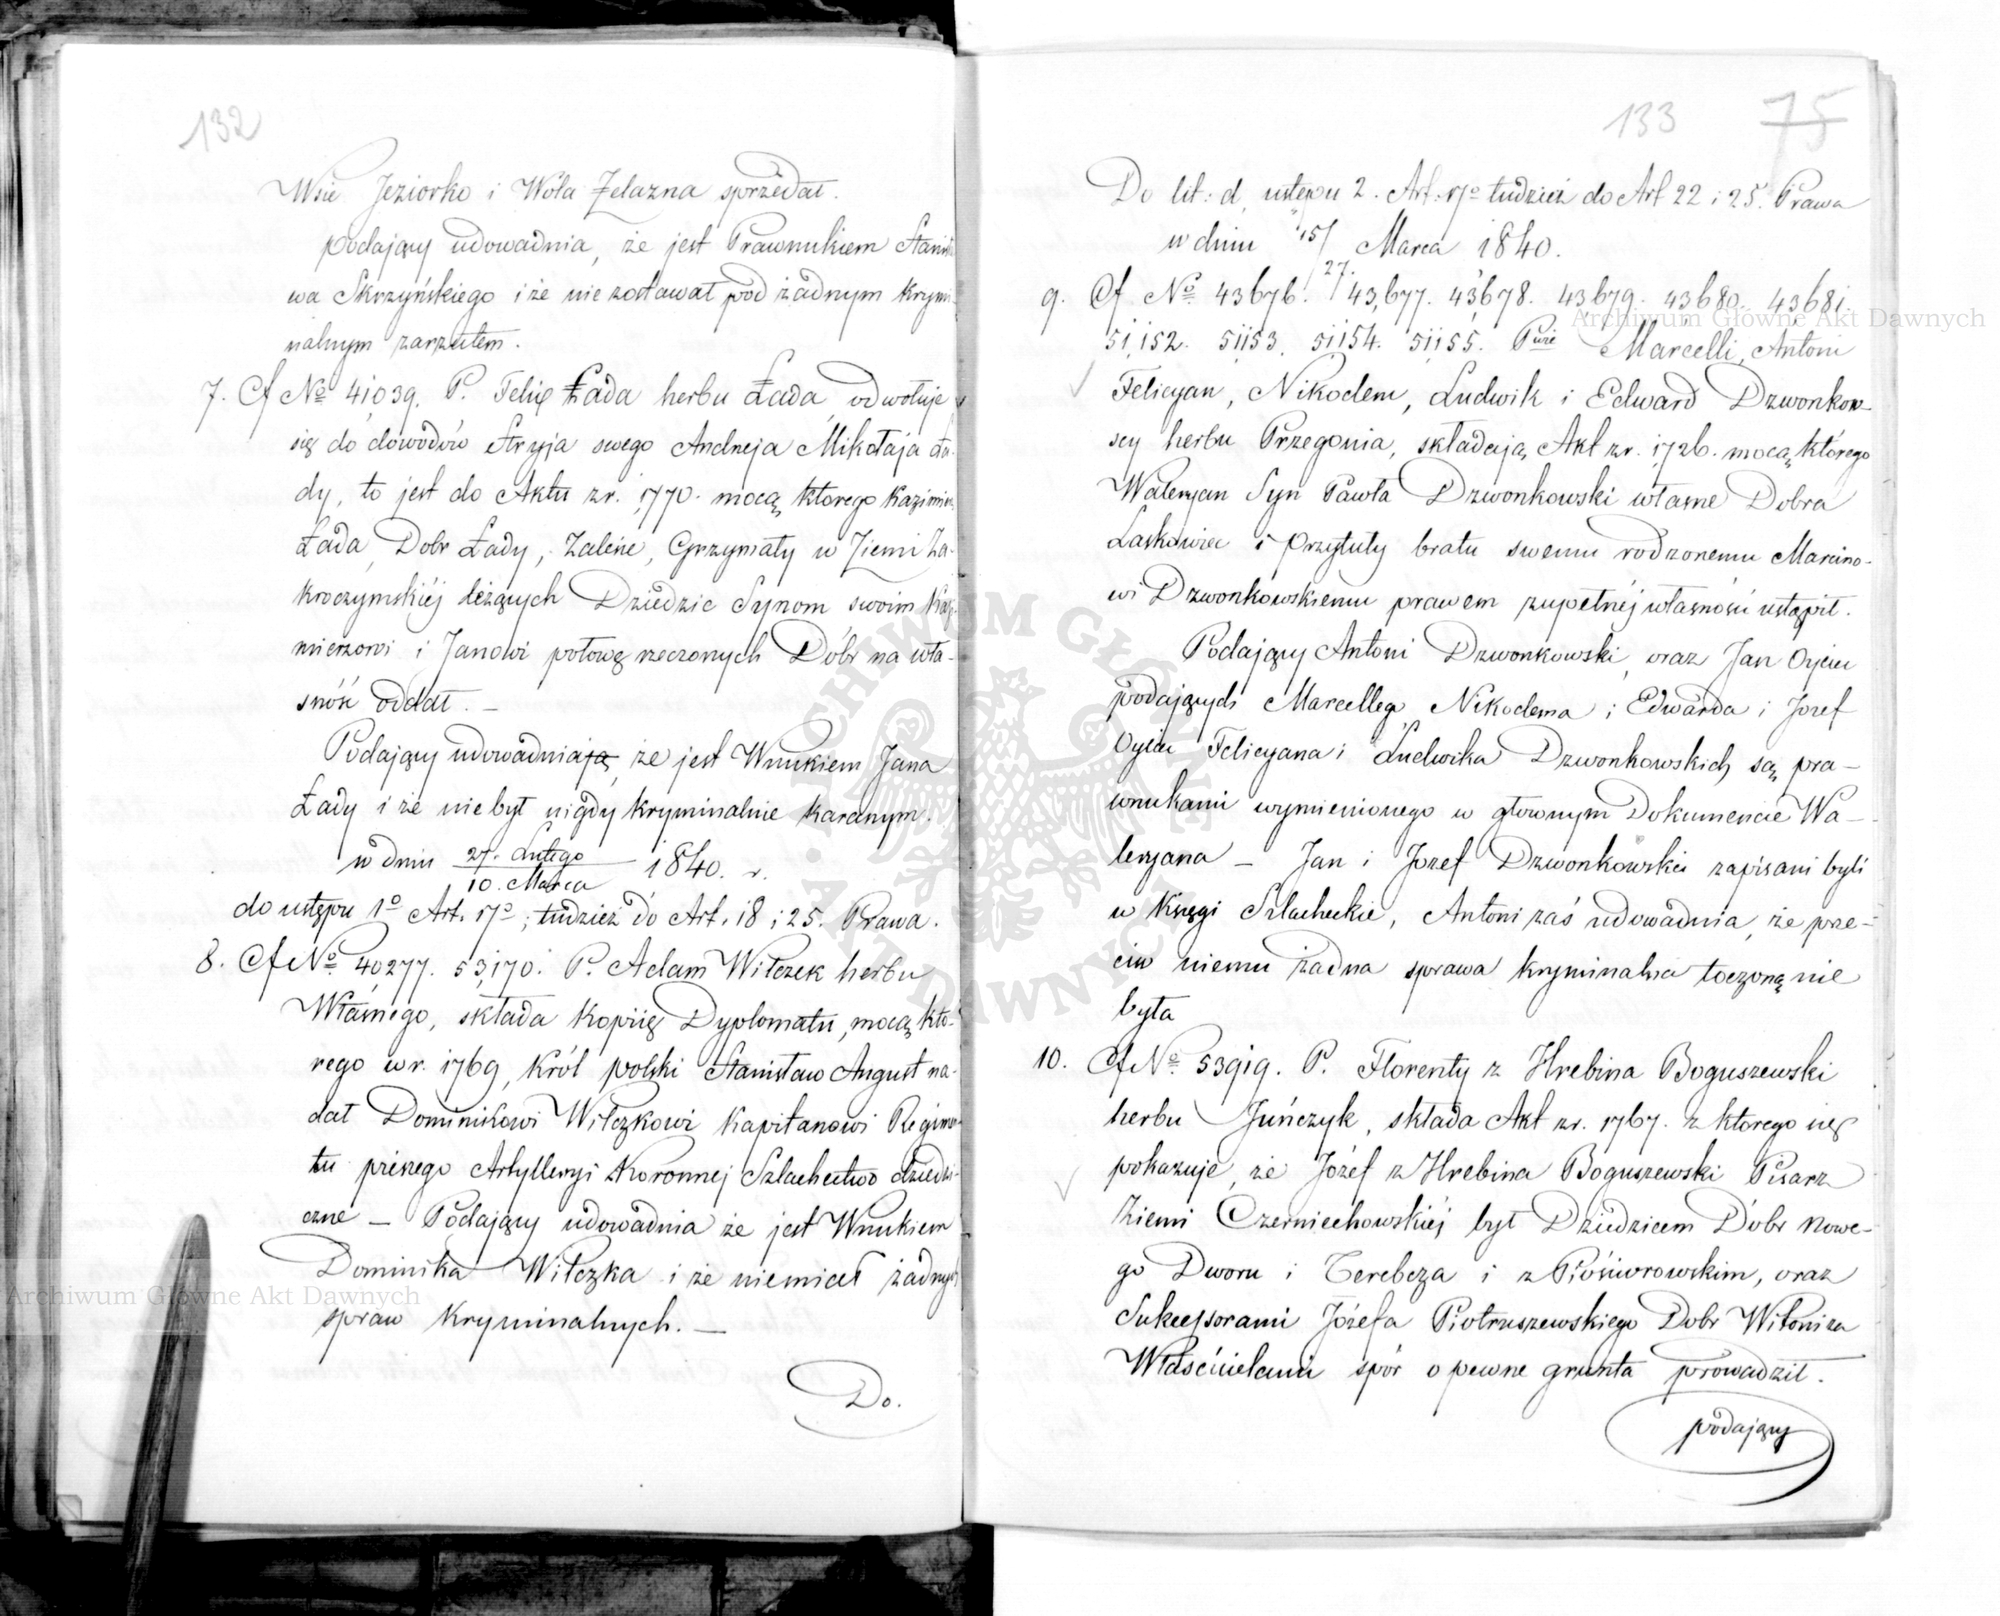 132
Wsie Jeziorko i Wola Żelazna sprzedał.
podający udowadnia, że jest Prawnukiem Stanisła
wa Skrzyńskiego i że nie zostawał pod żadnym krymi-
nalnym zarzutem.
7. Cf No 41,039. P. Felix Łada herbu Łada odwołuje
się do dowodów Stryja swego Andrzeja Mikołaja Ła-
dy, to jest do Aktu z r. 1770. mocą którego Kazimierz
Łada, Dobr Łady, Zalene, Grzymały w Ziemi Za-
kroczymskiéj leżących Dziedzic Synom swoim Kazi-
mierzowi i Janowi połowę rzeczonych Dóbr na wła-
sność oddał. —
Podający udowadniają, że jest Wnukiem Jana
Łady i że nie był nigdy kryminalnie karanym.
w dniu 27. Lutego 1840. r.
10. Marca
do ustępu 1o Art. 17o; tudzież do Art. 18 i 25. Prawa.
8. Cf No. 40277. 53,170. P. Adam Wilczek herbu
Własnego, składa Kopiię Dyplomatu, mocą któ-
rego w r. 1769, Król polski Stanisław August na-
dał Dominikowi Wilczkowi Kapitanowi Regimen-
tu pieszego Artylleryi Koronnej Szlachectwo dziedzi-
czne — Podający udowadnia że jest Wnukiem
Dominika Wilczka i że niemiał żadnych
spraw Kryminalnych. —
Do.
133 75
Do lit: d, ustępu 2. Art: 17o tudzież do Art 22 i 25. Prawa
w dniu 15/27. Marca 1840.
9. Cf No. 43676. 43,677. 43678. 43679. 43680. 43681.
51,152. 51153. 51154. 51155. Marcelli, Antoni
Felicyan, Nikodem, Ludwik i Edward Dzwonkow-
scy herbu Przegonia, składają Akt z r. 1726. mocą którego
Waleryan Syn Pawła Dzwonkowski własne Dobra
Laskowiec i Przytuły bratu swemu rodzonemu Marcino-
wi Dzwonkowskiemu prawem zupełnéj własności ustąpił.
Podający Antoni Dzwonkowski, oraz Jan Ojciec
podających Marcellego, Nikodema i Edwarda i Jozef
Ojciec Felicyana i Ludwika Dzwonkowskich są pra-
wnukami wymienionego w głownym Dokumencie Wa-
leryana — Jan i Jozef Dzwonkowski zapisani byli
w Księgi Szlacheckie, Antoni zaś udowadnia, że prze-
ciw niemu żadna sprawa kryminalna toczoną nie
była
10. Cf No. 53919. P. Florenty z Hrebina Boguszewski
herbu Juńczyk, składa Akt z r. 1767. z ktorego się
pokazuje, że Józef z Hrebina Boguszewski Pisarz
Ziemi Czerniechowskiéj był Dziedzicem Dóbr Nowe-
go Dworu i Terebcza i z oraz
Sukcessorami Józefa Piotruszewskiego Dobr Witonica
Właścicielami spór o pewne grunta prowadził.
podający
Archiwum Główne Akt Dawnych
Archiwum Główne Akt Dawnych
ARCHIWUM GŁÓWNE AKT DAWNYCH